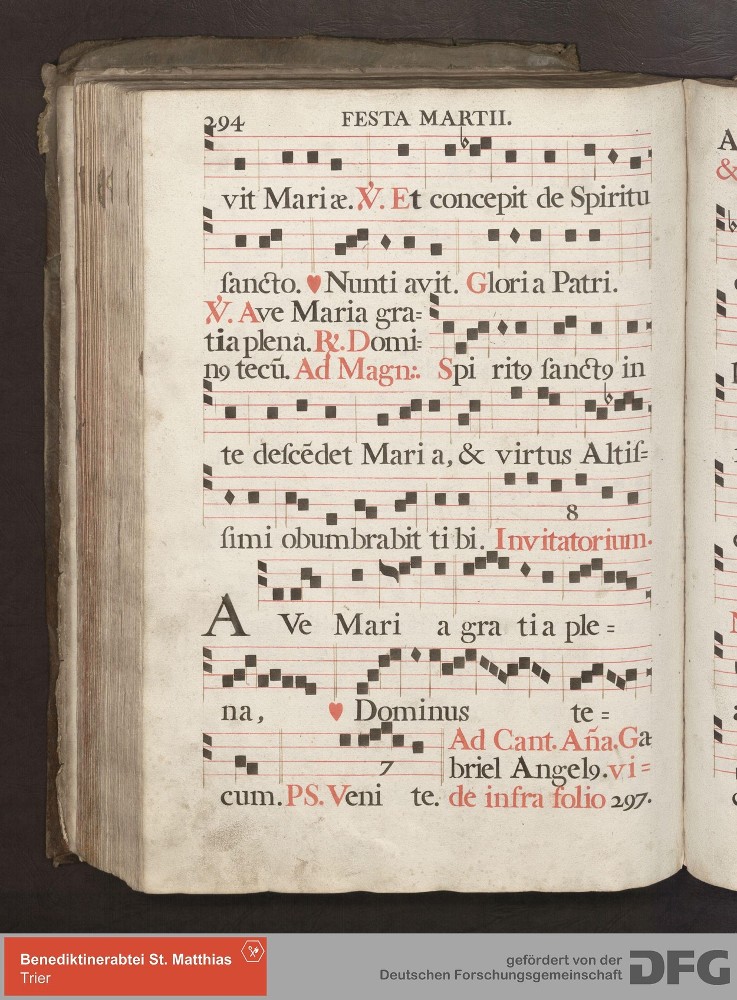 294 FESTA MARTII.
vit Mariæ. ℣. Et concepit de Spiritu
ſancto. ♥ Nunti avit. Gloria Patri.
℣. Ave Maria gra=
tia plena. ℟. Domi=
nꝰ tecū. Ad Magn:. Spi ritꝰ ſanctꝰ in
te deſcēdet Mari a, & virtus Altiſ=
8
ſimi obumbrabit ti bi. Invitatorium.
A Ve Mari a gra tia ple=
na, ♥ Dominus te=
7
cum. PS. Veni te.
Ad Cant. Aña. Ga
briel Angelꝰ. vi=
de infra folio 297.
A
&
Benediktinerabtei St. Matthias
Trier
gefördert von der
Deutschen Forschungsgemeinschaft
DFG